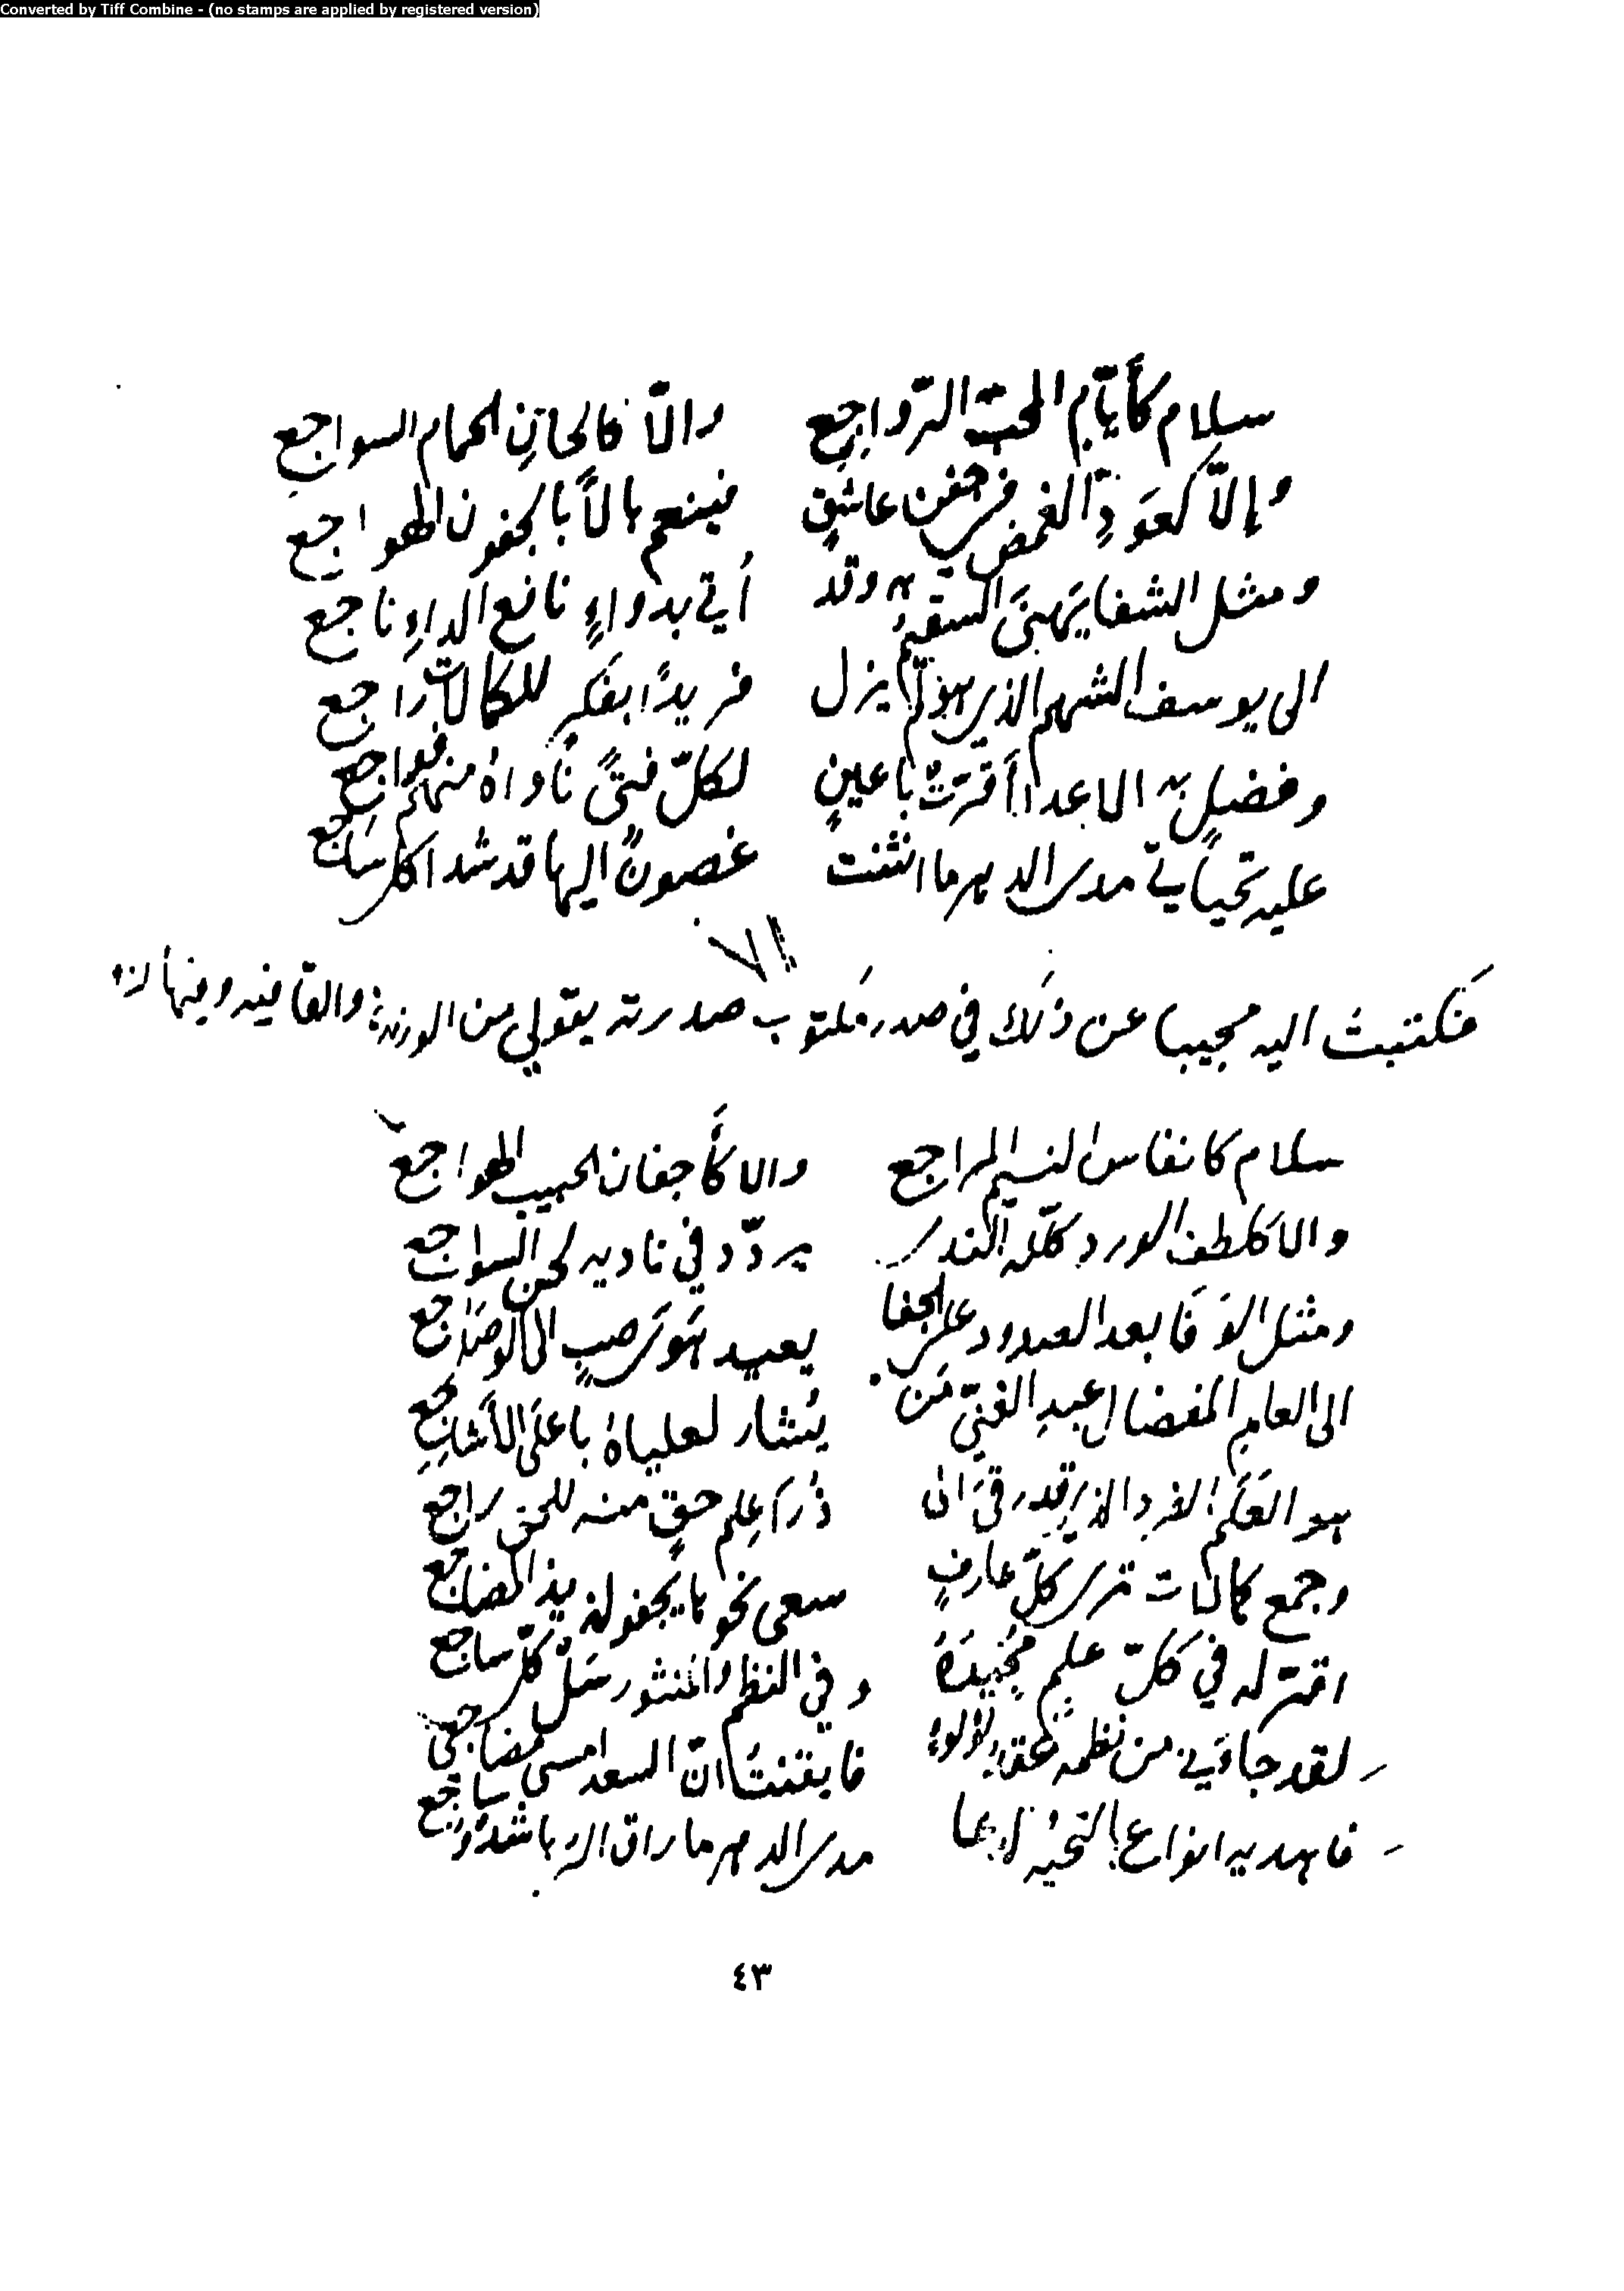 Converted by Tiff Combine - (no stamps are applied by registered version)
سلام كأيّام المحب الرّواجِع والاّ كالحانِ الحمام السواجع
وإلاّ كعَودِ الغمض في جفن عاشقٍ فينعم بالاً بالجفون الهواجع
ومثل الشفا يَهنىَ السقيمُ به وقد أتى بدواءٍ نافع الداءِ ناجع
الى يوسف الشهم الذي هو لم يزل فريدًا بفكرٍ للكمالات راجع
وفضلٍ به الاعدا أقرّت باعينٍ لكلّ فتىً ناواهُ منهم فواجع
عليه تحياتي مدى الدهر ما انثنت غصونٌ اليها قد شدا كل ساجع
٧١
فكتبت اليه مجيبا عن ذلك في صدر مكتوب صدرته بقولي من الوزن والقافيه وفيها
سلام كانفاس النسيم المراجع والا كأجفان الحبيب الهواجع
والا كلطف الورد كلّله الندى يردّد في ناديه لحن السواجع
ومثل الوَفَا بعد الصدود على الجفا يعيد هوى صبٍ الى الوصل راجع
الى العالم المفضال عبدِ الغنيّ مَن يُشار لعلياهُ باعلى الأشاجع
هو العَلَم الفرد الذي قد رقىَ الى ذُرَا عِلمِ حقٍ منه للحق راجع
وجمع كمالات ترى كلّ عارفٍ سعى نحوها يجفو لذيذ المضاجع
اقرّ له في كلّ علمٍ مُجيدَهُ وفي النظم والمنثور سَل كلّ ساجع
لقد جاءَني من نظمه عقد لؤلؤ فايقنتُ انّ السعد امسى مضاجعي
فاهديه انواع التحيه مدى الدهر ما راق الربا شدو ساجع
٤٣